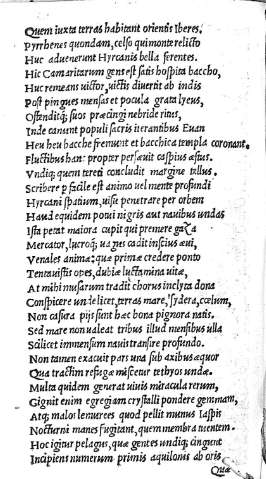 Quem iuxta terras habitant orientis Iberes.
Pyrrhenes quondam, celso qui monte relicto
Huc aduenerunt Hyrcanis bella ferentes.
Hic Camaritarum gens est satis hospita baccho,
Huc remeans uictor, uictis diuertit ab indis
Post pingues mensas et pocula grata lyeus,
Ostenditq; suos præcingi nebride ritus,
Inde canunt populi sacris iterantibus Euan
Heu heu bacche fremunt et bacchica templa coronant.
Fluctibus han: propter persæuit caspius æstus.
Vndiq; quem tereti concludit margine tellus.
Scribere p facile est animo uel mente profundi
Hyrcani spatium, uisu penetrare per orbem
Haud equidem potui nigris aut nauibus undas
Ista petat maiora cupit qui premere gaza
Mercator, lucroq; uagus cadit inscius æui,
Venales anima: quæ primæ credere ponto
Tentauistis opes, dubiæ luctamina uitæ,
At mihi musarum tradit chorus inclyta dona
Conspicere unde licet, terras mare, sydera, cœlum,
Non casura pijs sunt hæc bona pignora natis.
Sed mare non ualeat tribus illud mensibus ulla
Scilicet immensum nauis transire profundo.
Non tamen exacuit pars una sub axibus æquor
Qua tractim refugæ miscetur tethyos undæ.
Multa quidem generat uiuis miracula rerum,
Gignit enim egregiam crystalli pondere gemmam,
Atq; malos lemurees quod pellit munus Iaspis
Nocturni manes fugitant, quem membra tuentem.
Hoc igitur pelagus, quæ gentes undiq; cingunt
Incipiens numerum primis aquilonis ab oris
Quæ